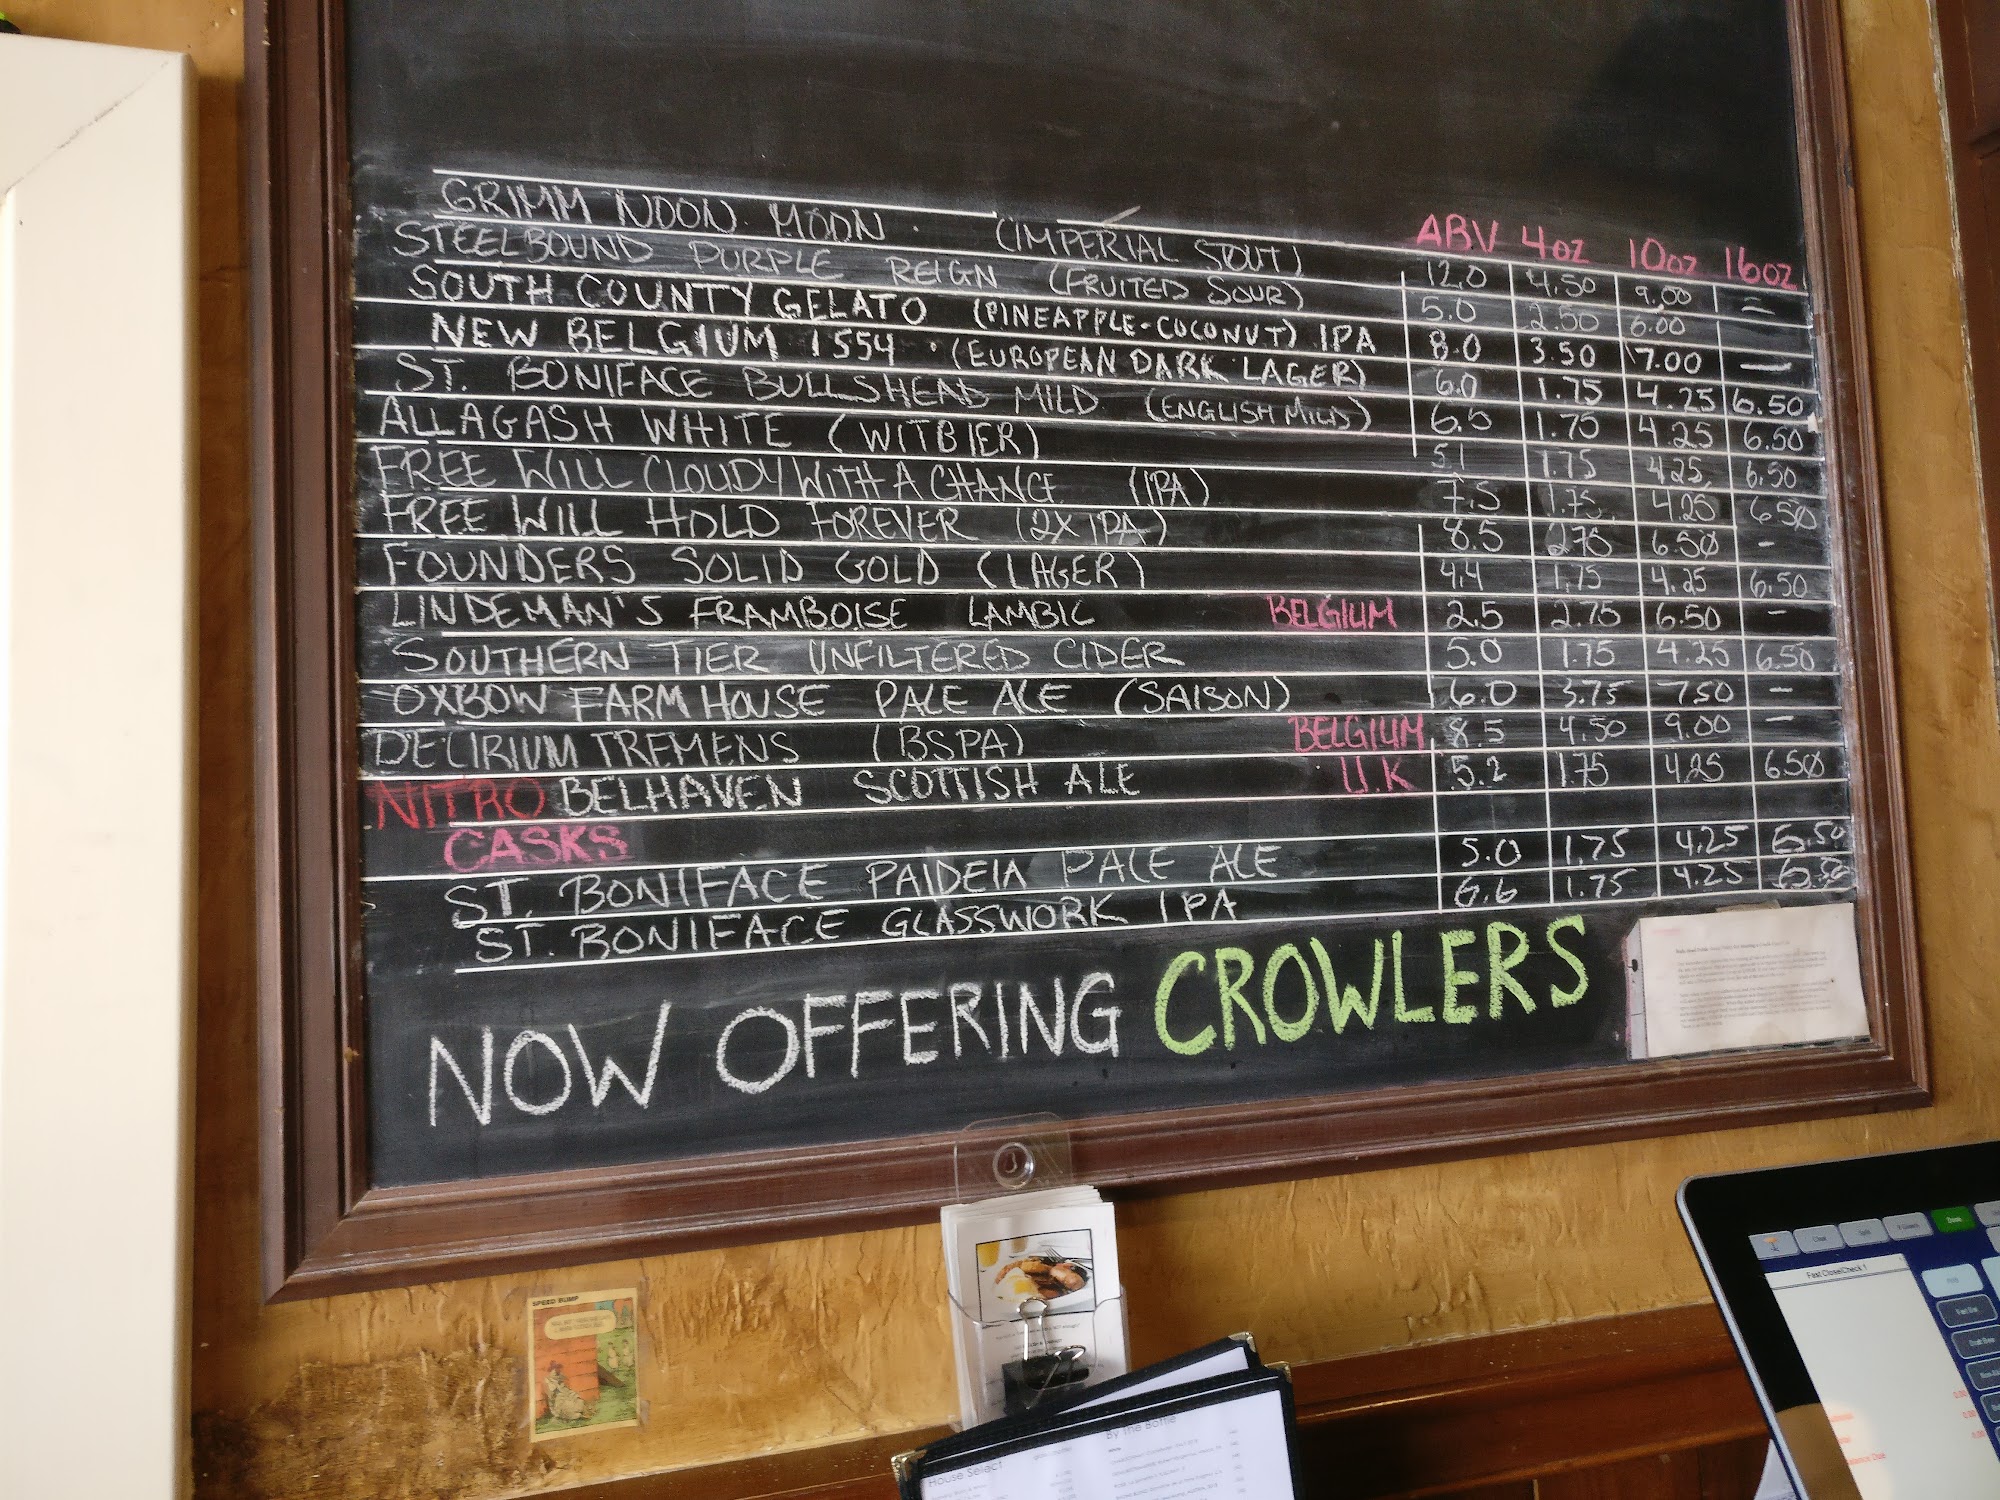 ABV 4oz 10oz 16oz
GRIMM NOON MOON (IMPERIAL STOUT) 12.0 4.50 9.00 =
STEELBOUND PURPLE REIGN (FRUITED SOUR) 5.0 2.50 6.00
SOUTH COUNTY GELATO (PINEAPPLE-COCONUT) IPA 8.0 3.50 7.00 —
NEW BELGIUM 1554 · (EUROPEAN DARK LAGER) 6.0 1.75 4.25 6.50
ST. BONIFACE BULLSHEAD MILD (ENGLISH MILD) 6.5 1.75 4.25 6.50
ALLAGASH WHITE (WITBIER) 5.1 1.75 4.25 6.50
FREE WILL CLOUDY WITH A CHANCE (IPA) 7.5 1.75 4.25 6.50
FREE WILL HOLD FOREVER (2X IPA) 8.5 2.75 6.50 -
FOUNDERS SOLID GOLD (LAGER) 4.4 1.75 4.25 6.50
LINDEMAN'S FRAMBOISE LAMBIC BELGIUM 2.5 2.75 6.50 -
SOUTHERN TIER UNFILTERED CIDER 5.0 1.75 4.25 6.50
OXBOW FARM HOUSE PALE ALE (SAISON) 6.0 3.75 7.50 -
DELIRIUM TREMENS (BSPA) BELGIUM 8.5 4.50 9.00 -
NITRO BELHAVEN SCOTTISH ALE U.K 5.2 1.75 4.25 6.50
CASKS
ST. BONIFACE PAIDEIA PALE ALE 5.0 1.75 4.25 6.50
ST. BONIFACE GLASSWORK IPA 6.6 1.75 4.25 6.50
NOW OFFERING CROWLERS
SPEED BUMP
House Select
By The Bottle
Fast Close/Check 1
Done